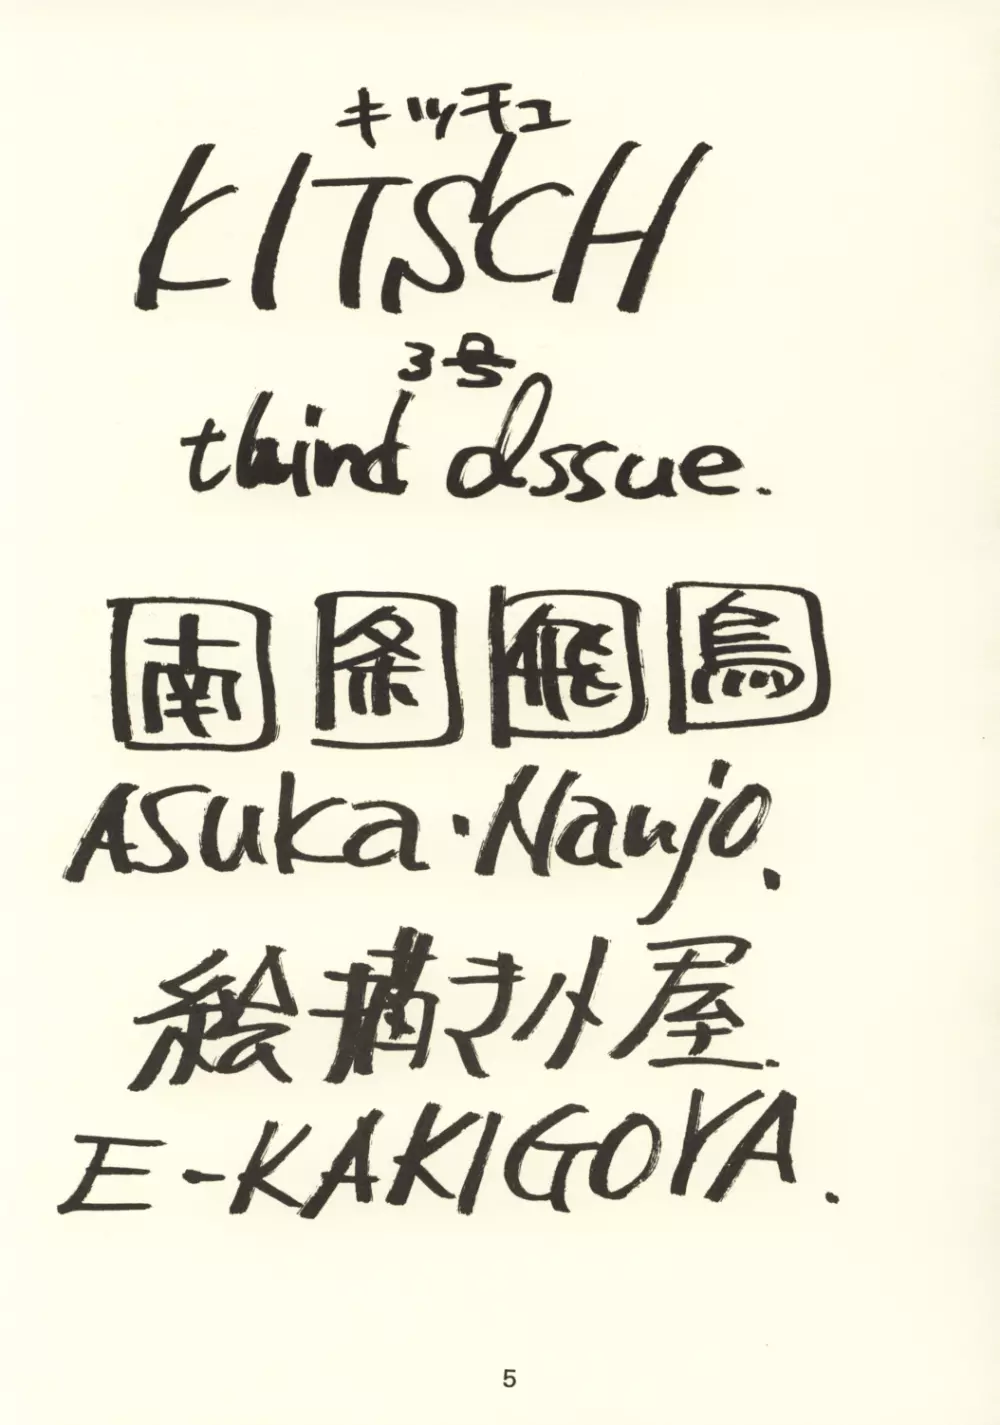 キッチュ
KITSCH
3号
third issue.
南条飛鳥
ASUKa・Nanjo.
絵描き小屋.
E-KAKIGOYA.
5